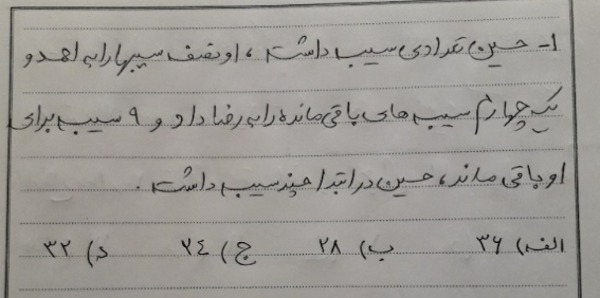 ۱- حسین تعدادی سیب داشت ، او نصف سیبها را به احمد و
یک چهارم سیب های باقی مانده را به رضا داد و ۹ سیب برای
او باقی ماند ، حسین در ابتدا چند سیب داشت .
الف) ۳۶ ب) ۲۸ ج) ۲۴ د) ۳۲